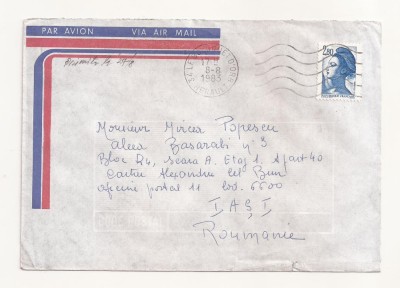 PAR AVION VIA AIR MAIL
8-8
1983
2,80
Monsieur Mircea Popescu
Aleea Basarabi n° 3
Bloc D4, Scara A. Etaj 1. Apart 40
Cartier Alexandru cel Bun
oficiul postal 11 cod. 6600
IAŞI
Roumanie